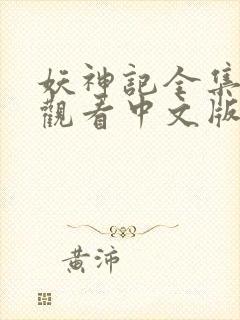 妖神記全集
觀看中文版
黃沛